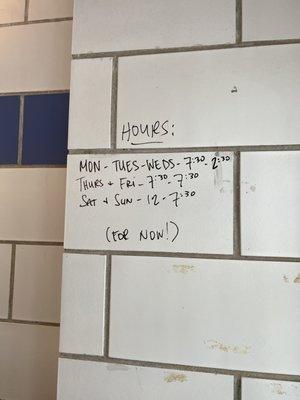 HOURS:
MON - TUES - WEDS - 7:30 - 2:30
THURS + FRI - 7:30 - 7:30
SAT + SUN - 12 - 7:30
(FOR NOW!)